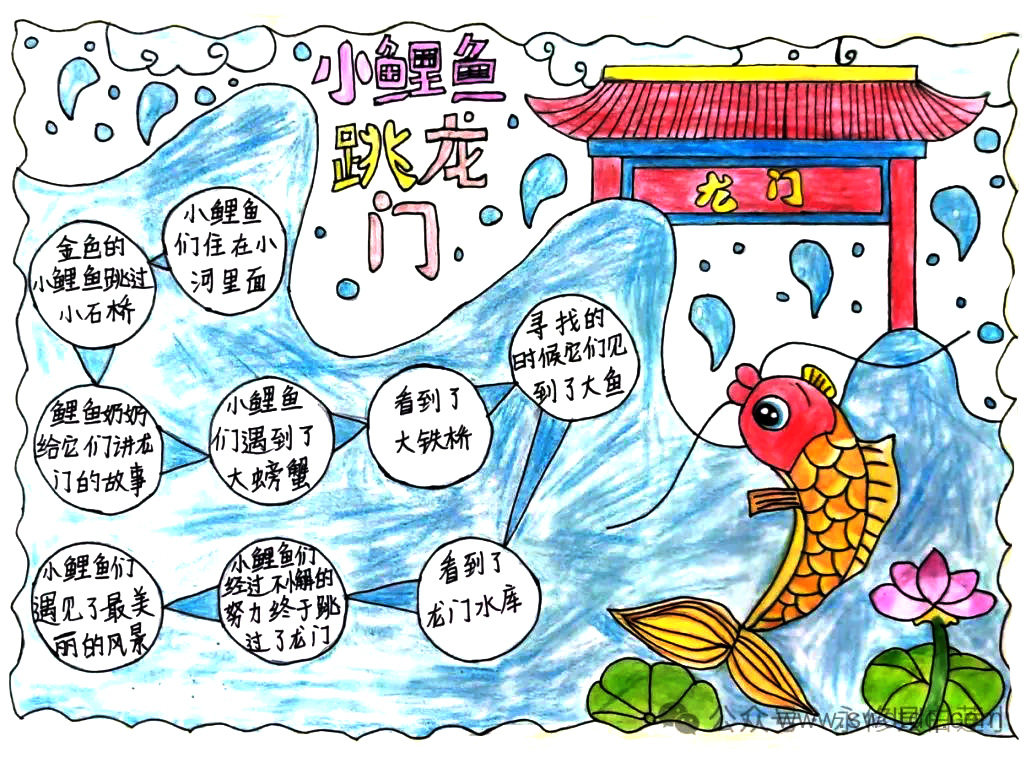 小鲤鱼
跳龙
门
龙门
小鲤鱼
们住在小
河里面
金色的
小鲤鱼跳过
小石桥
鲤鱼奶奶
给它们讲龙
门的故事
小鲤鱼
们遇到了
大螃蟹
看到了
大铁桥
寻找的
时候它们见
到了大鱼
看到了
龙门水库
小鲤鱼们
经过不懈的
努力终于跳
过了龙门
小鲤鱼们
遇见了最美
丽的风景
公众号